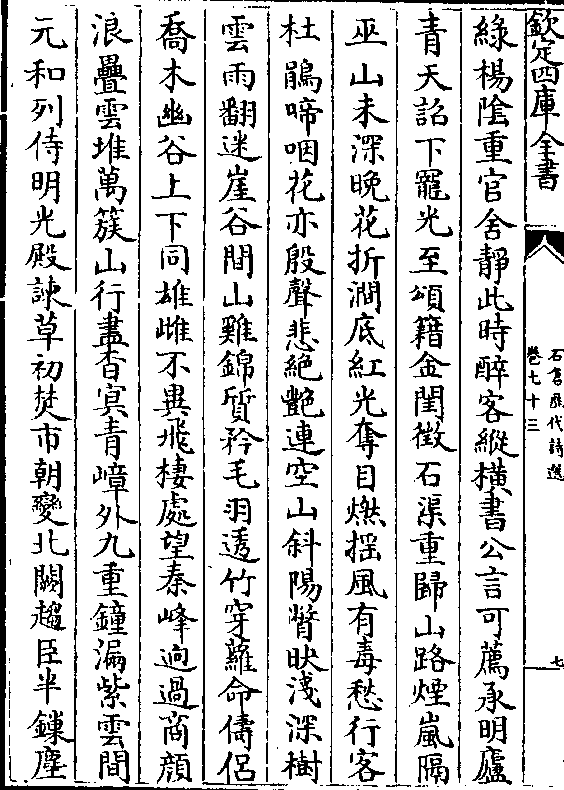 欽定四庫全書
石倉歷代詩選
卷七十三
七
綠楊陰重官舍靜此時醉客縱橫書公言可薦承明廬
青天詔下寵光至頌籍金閨徵石渠重歸山路煙嵐隔
巫山未深晚花折澗底紅光奪目燃揺風有毒愁行客
杜鵑啼咽花亦殷聲悲絶艷連空山斜陽瞥映淺深樹
雲雨翻迷崖谷間山雞錦質矜毛羽透竹穿蘿命儔侣
喬木幽谷上下同雄雌不異飛棲處望秦峰迥過商顔
浪疊雲堆萬簇山行盡杳冥青嶂外九重鐘漏紫雲間
元和列侍明光殿諫草初焚市朝變北闕趨臣半鍊塵